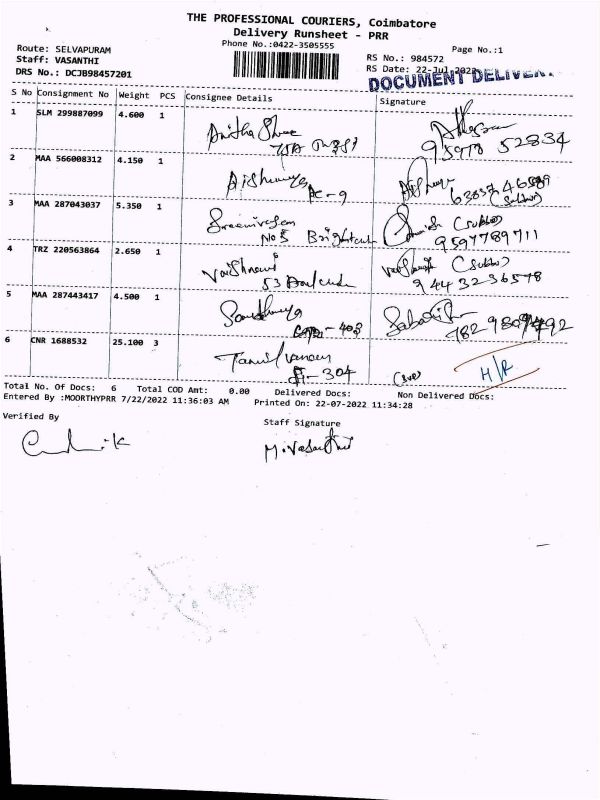 THE PROFESSIONAL COURIERS, Coimbatore
Delivery Runsheet - PRR
Phone No.:0422-3505555
Page No.:1
Route: SELVAPURAM
Staff: VASANTHI
DRS No.: DCJB98457201
RS No.: 984572
RS Date: 22-Jul-2022
DOCUMENT DELIVER
S No Consignment No Weight PCS Consignee Details Signature
1 SLM 299887099 4.600 1 Anitha Shree
95978 52834
2 MAA 566008312 4.150 1 Aishwarya
AC-9
3 MAA 287043037 5.350 1 Sreenivasan
No 5
9597789711
4 TRZ 220563864 2.650 1 Vaishnavi
53
9443236578
5 MAA 287443417 4.500 1 Sandhiya
403
6 CNR 1688532 25.100 3 Tamilvanan
304 H/R
Total No. Of Docs: 6 Total COD Amt: 0.00 Delivered Docs: Non Delivered Docs:
Entered By :MOORTHYPRR 7/22/2022 11:36:03 AM Printed On: 22-07-2022 11:34:28
Verified By
Staff Signature
M. Vasanthi